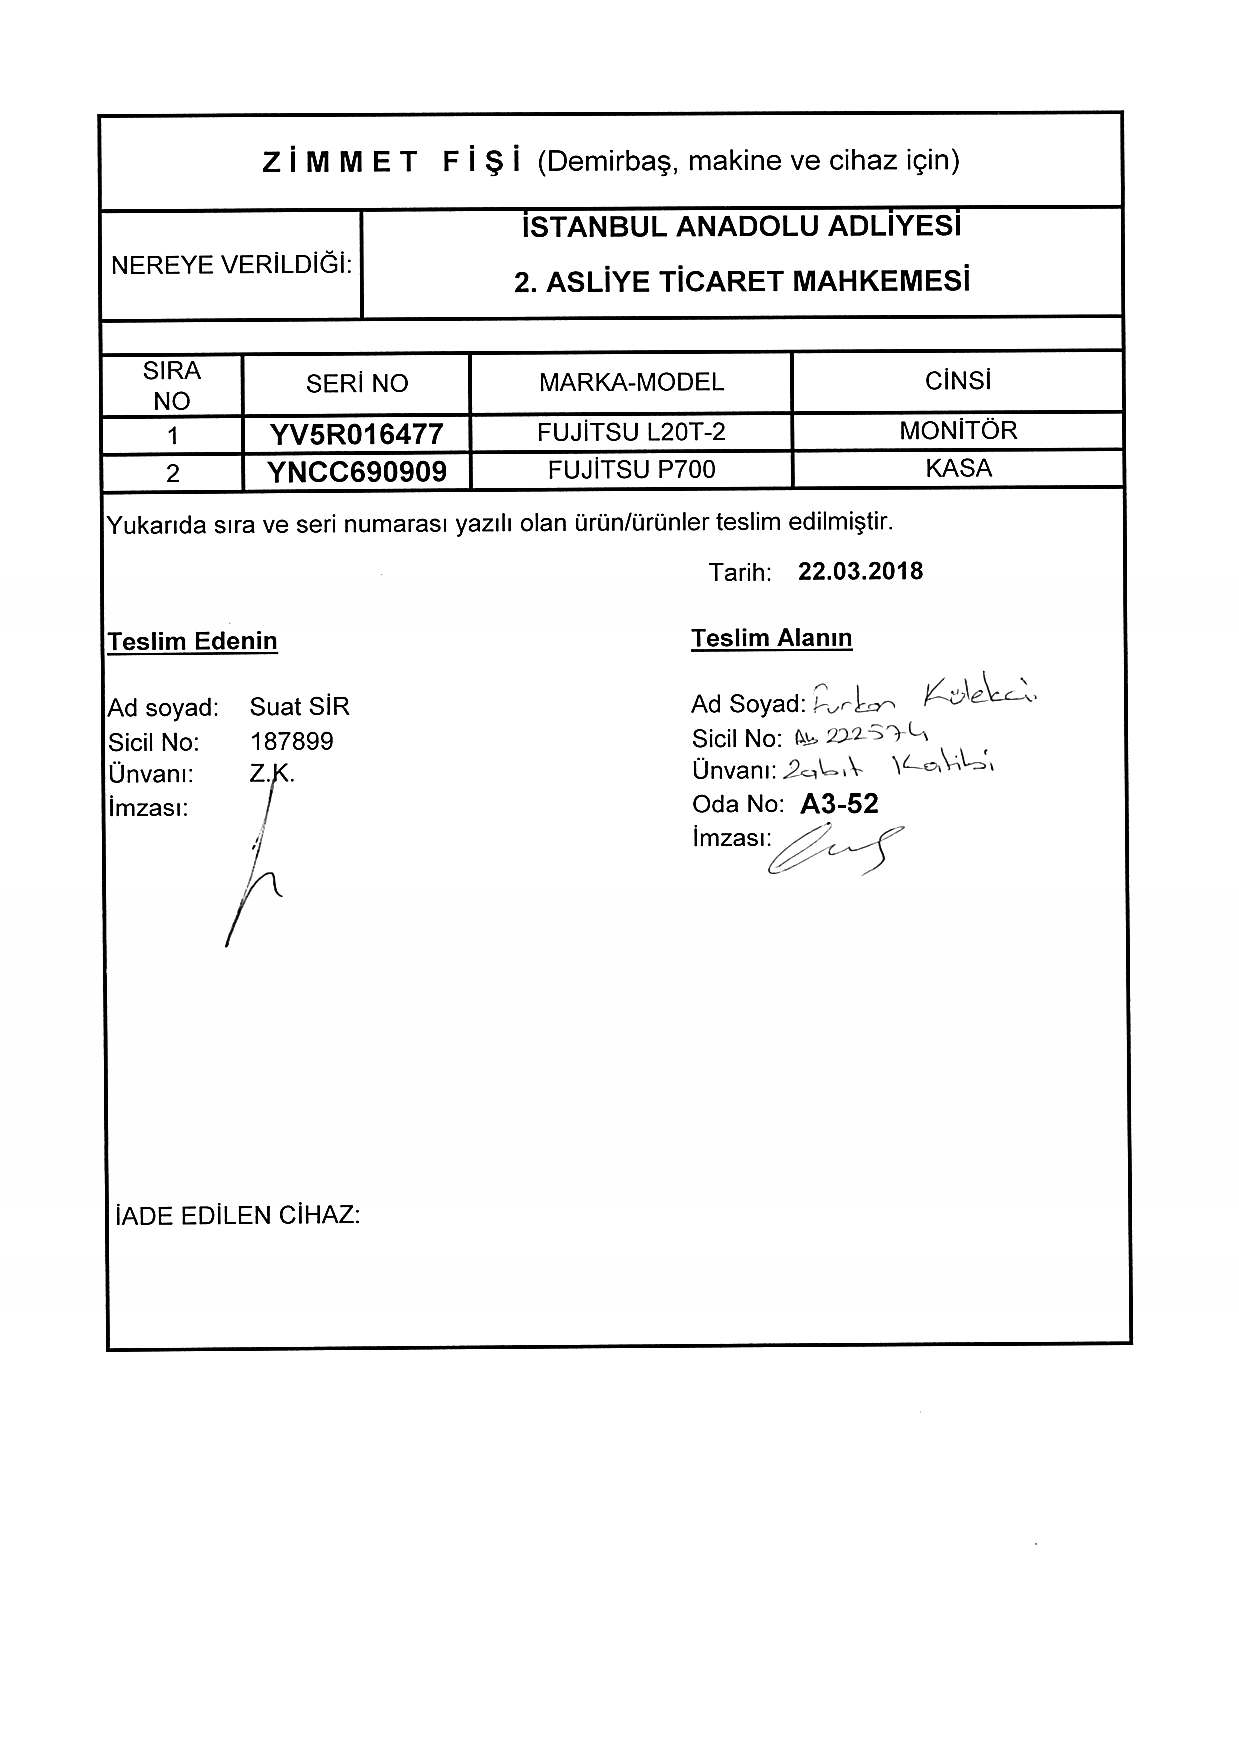 ZİMMET FİŞİ (Demirbaş, makine ve cihaz için)
NEREYE VERİLDİĞİ:
İSTANBUL ANADOLU ADLİYESİ
2. ASLİYE TİCARET MAHKEMESİ
SIRA NO SERİ NO MARKA-MODEL CİNSİ
1 YV5R016477 FUJİTSU L20T-2 MONİTÖR
2 YNCC690909 FUJİTSU P700 KASA
Yukarıda sıra ve seri numarası yazılı olan ürün/ürünler teslim edilmiştir.
Tarih: 22.03.2018
Teslim Edenin
Teslim Alanın
Ad soyad: Suat SİR
Ad Soyad: Furkan Külekci
Sicil No: 187899
Sicil No: 222574
Ünvanı: Z.K.
Ünvanı: Zabıt Katibi
İmzası:
Oda No: A3-52
İmzası:
İADE EDİLEN CİHAZ: